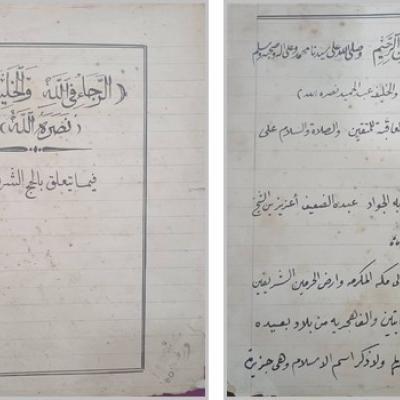 (الرجاء في الله والخليـ
(نصره الله)
فيما تتعلق بالحج الشر
الرحيم وصلى الله على سيدنا محمد وعلى اله وصحبه وسلم
والخليفة عبد الحميد نصره الله)
لعاقبة للمتقين والصلاة والسلام على
به الجواد عبده الضعيف أعزيز بن الشيخ
لى مكة المكرمه وارض الحرمين الشريفين
والقاهريه من بلاد بعيده
ولا ذكر اسم الاسلام وهى جزيرة